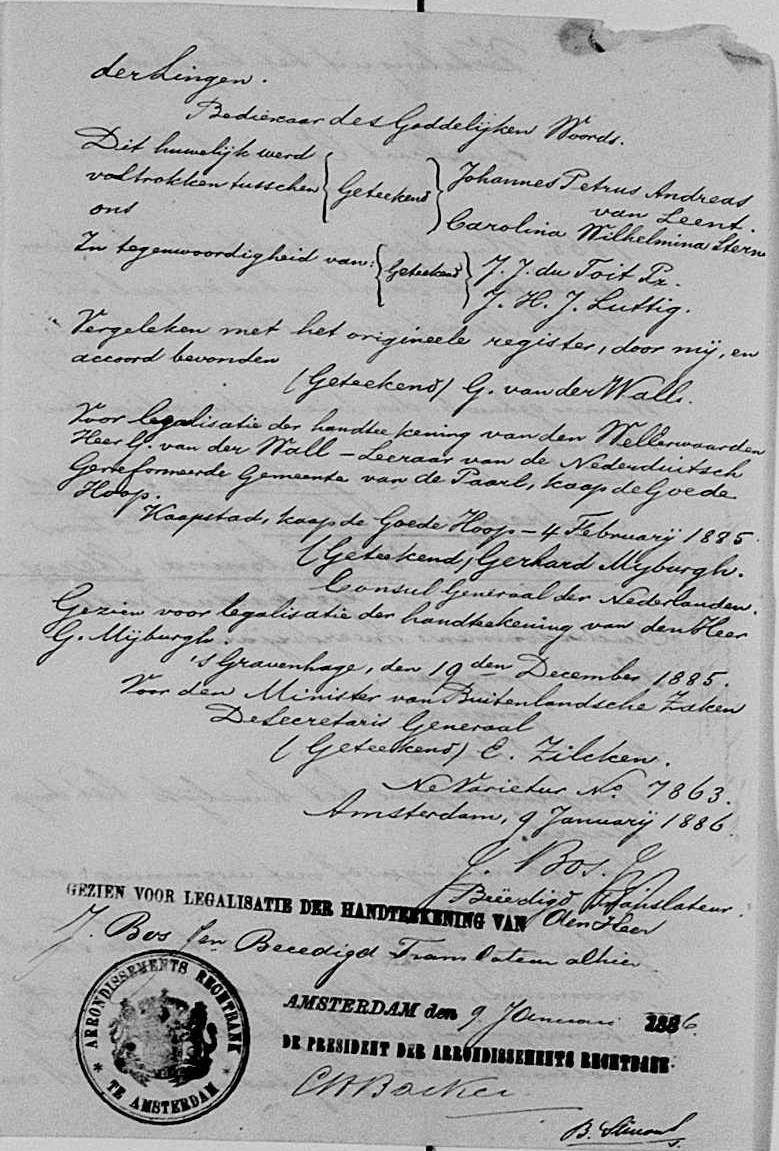 der Lingen.
Bedienaar des Goddelijken Woords.
Dit huwelijk werd
voltrokken tusschen
ons
(Geteekend)
Johannes Petrus Andreas
van Leent.
Carolina Wilhelmina Stern
In tegenwoordigheid van:
(Geteekend)
J. J. du Toit Pz.
J. H. J. Luttig.
Vergeleken met het origineele register, door mij, en
accoord bevonden
(Geteekend) G. van der Wall.
Voor legalisatie der handteekening van den Weleerwaarden
Heer G. van der Wall – Leeraar van de Nederduitsch
Gereformeerde Gemeente van de Paarl, kaap de Goede
Hoop.
Kaapstad, kaap de Goede Hoop – 4 Februarij 1885.
(Geteekend) Gerhard Myburgh.
Consul Generaal der Nederlanden.
Gezien voor legalisatie der handteekening van den Heer
G. Mijburgh.
's Gravenhage, den 19den December 1885.
Voor den Minister van Buitenlandsche Zaken
De Secretaris Generaal
(Geteekend) C. Zilcken.
Ne Varietur No. 7863.
Amsterdam, 9 Januarij 1886.
J. Bos.
Beëedigd Translateur.
GEZIEN VOOR LEGALISATIE DER HANDTEEKENING VAN den Heer
J. Bos Jen Beeedigd Translateur alhier
AMSTERDAM den 9 Januari 1886.
DE PRESIDENT DER ARRONDISSEMENTS RECHTBANK
ARRONDISSEMENTS RECHTBANK
* TE AMSTERDAM *